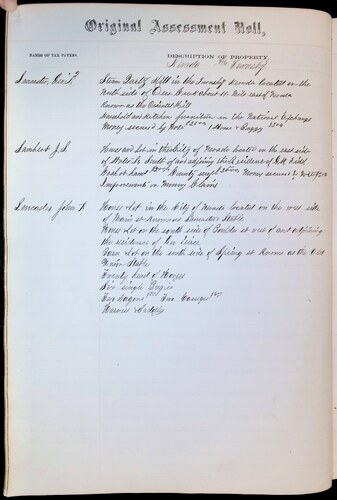 Original Assessment Roll,
NAMES OF TAX PAYERS.
DESCRIPTION OF PROPERTY.
Nevada Township
Lancaster, Geo.
Steam Quartz Mill in the Township Nevada located on the
North side of Deer Creek about 1½ Mile east of Nevada
Known as the Mill
Household and kitchen furniture in the National Exchange
Money secured by Note 1 Horse & Buggy
Lambert J.S.
House and Lot in the City of Nevada located on the east side
of Water St. South of and adjoining the residence of
Cash on hand County scrip Money secured by
Improvements on Mining Claims
Lancaster John
House & Lot in the City of Nevada located on the west side
of Main st known as Lancaster Stable
House & Lot on the south side of st west of and adjoining
the residence of Geo Peirce
Barn & Lot on the south side of Spring st known as the Old
Union Stable
Twenty head of Horses
Six single Bugies
Two Wagons Two
Harness & Saddles